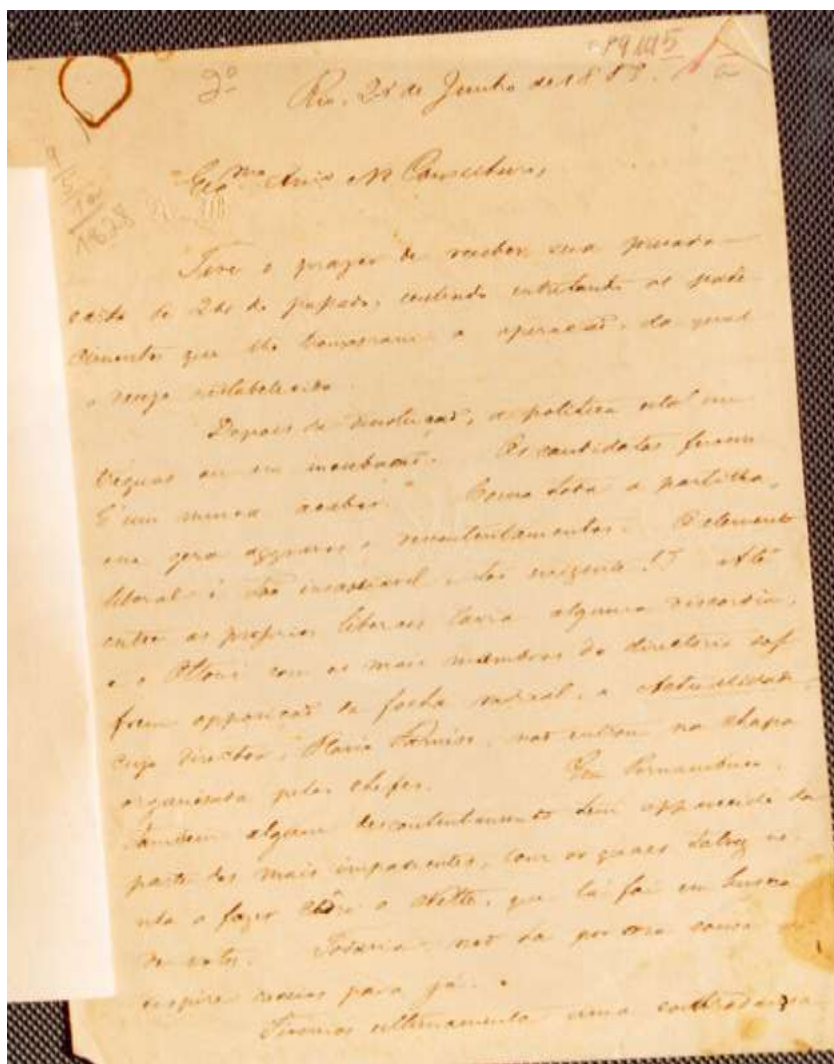 2º
Rio, 28 de Junho de 18
Exmo Amº Conselheiro,
Tive o prazer de receber sua presada
carta de 24 do passado, contendo entretanto os pade-
cimentos que lhe trouxeram a operacaõ, da qual
o desejo restabelecido.
Depois da dissoluçaõ, a politica está em
treguas ou em incubacaõ. Os candidatos
É um nunca acabar. Como toda a partilha,
essa gera aggravos e descontentamentos. O elemento
liberal é taõ insaciavel e taõ exigente!! Até
entre os proprios liberaes lavra alguma discordia,
e o Ottoni com os mais membros do directorio sof-
frem opposicaõ da folha radical, a Actualidade,
cujo director, Flavio Farnése, naõ entrou na chapa
organisada pelos chefes. Em Pernambuco
tambem algum descontentamento tem apparecido da
parte dos mais impacientes, com os quaes talvez ve-
nha a fazer o que lá foi em busca
de votos. Todavia, naõ ha por ora cousa que
inspire receios para já.
Tivemos ultimamente uma contradansa